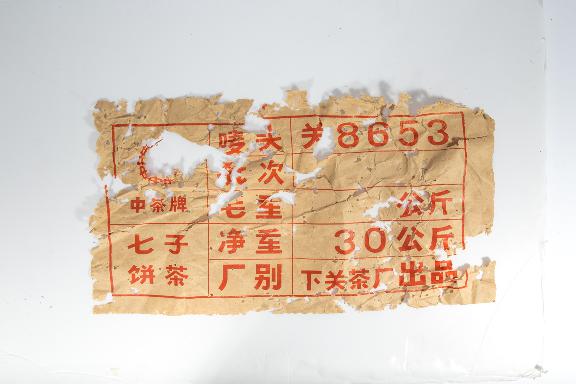 唛头 关8653
次
中茶牌 毛重 公斤
七子 净重 30公斤
饼茶 厂别 下关茶厂出品